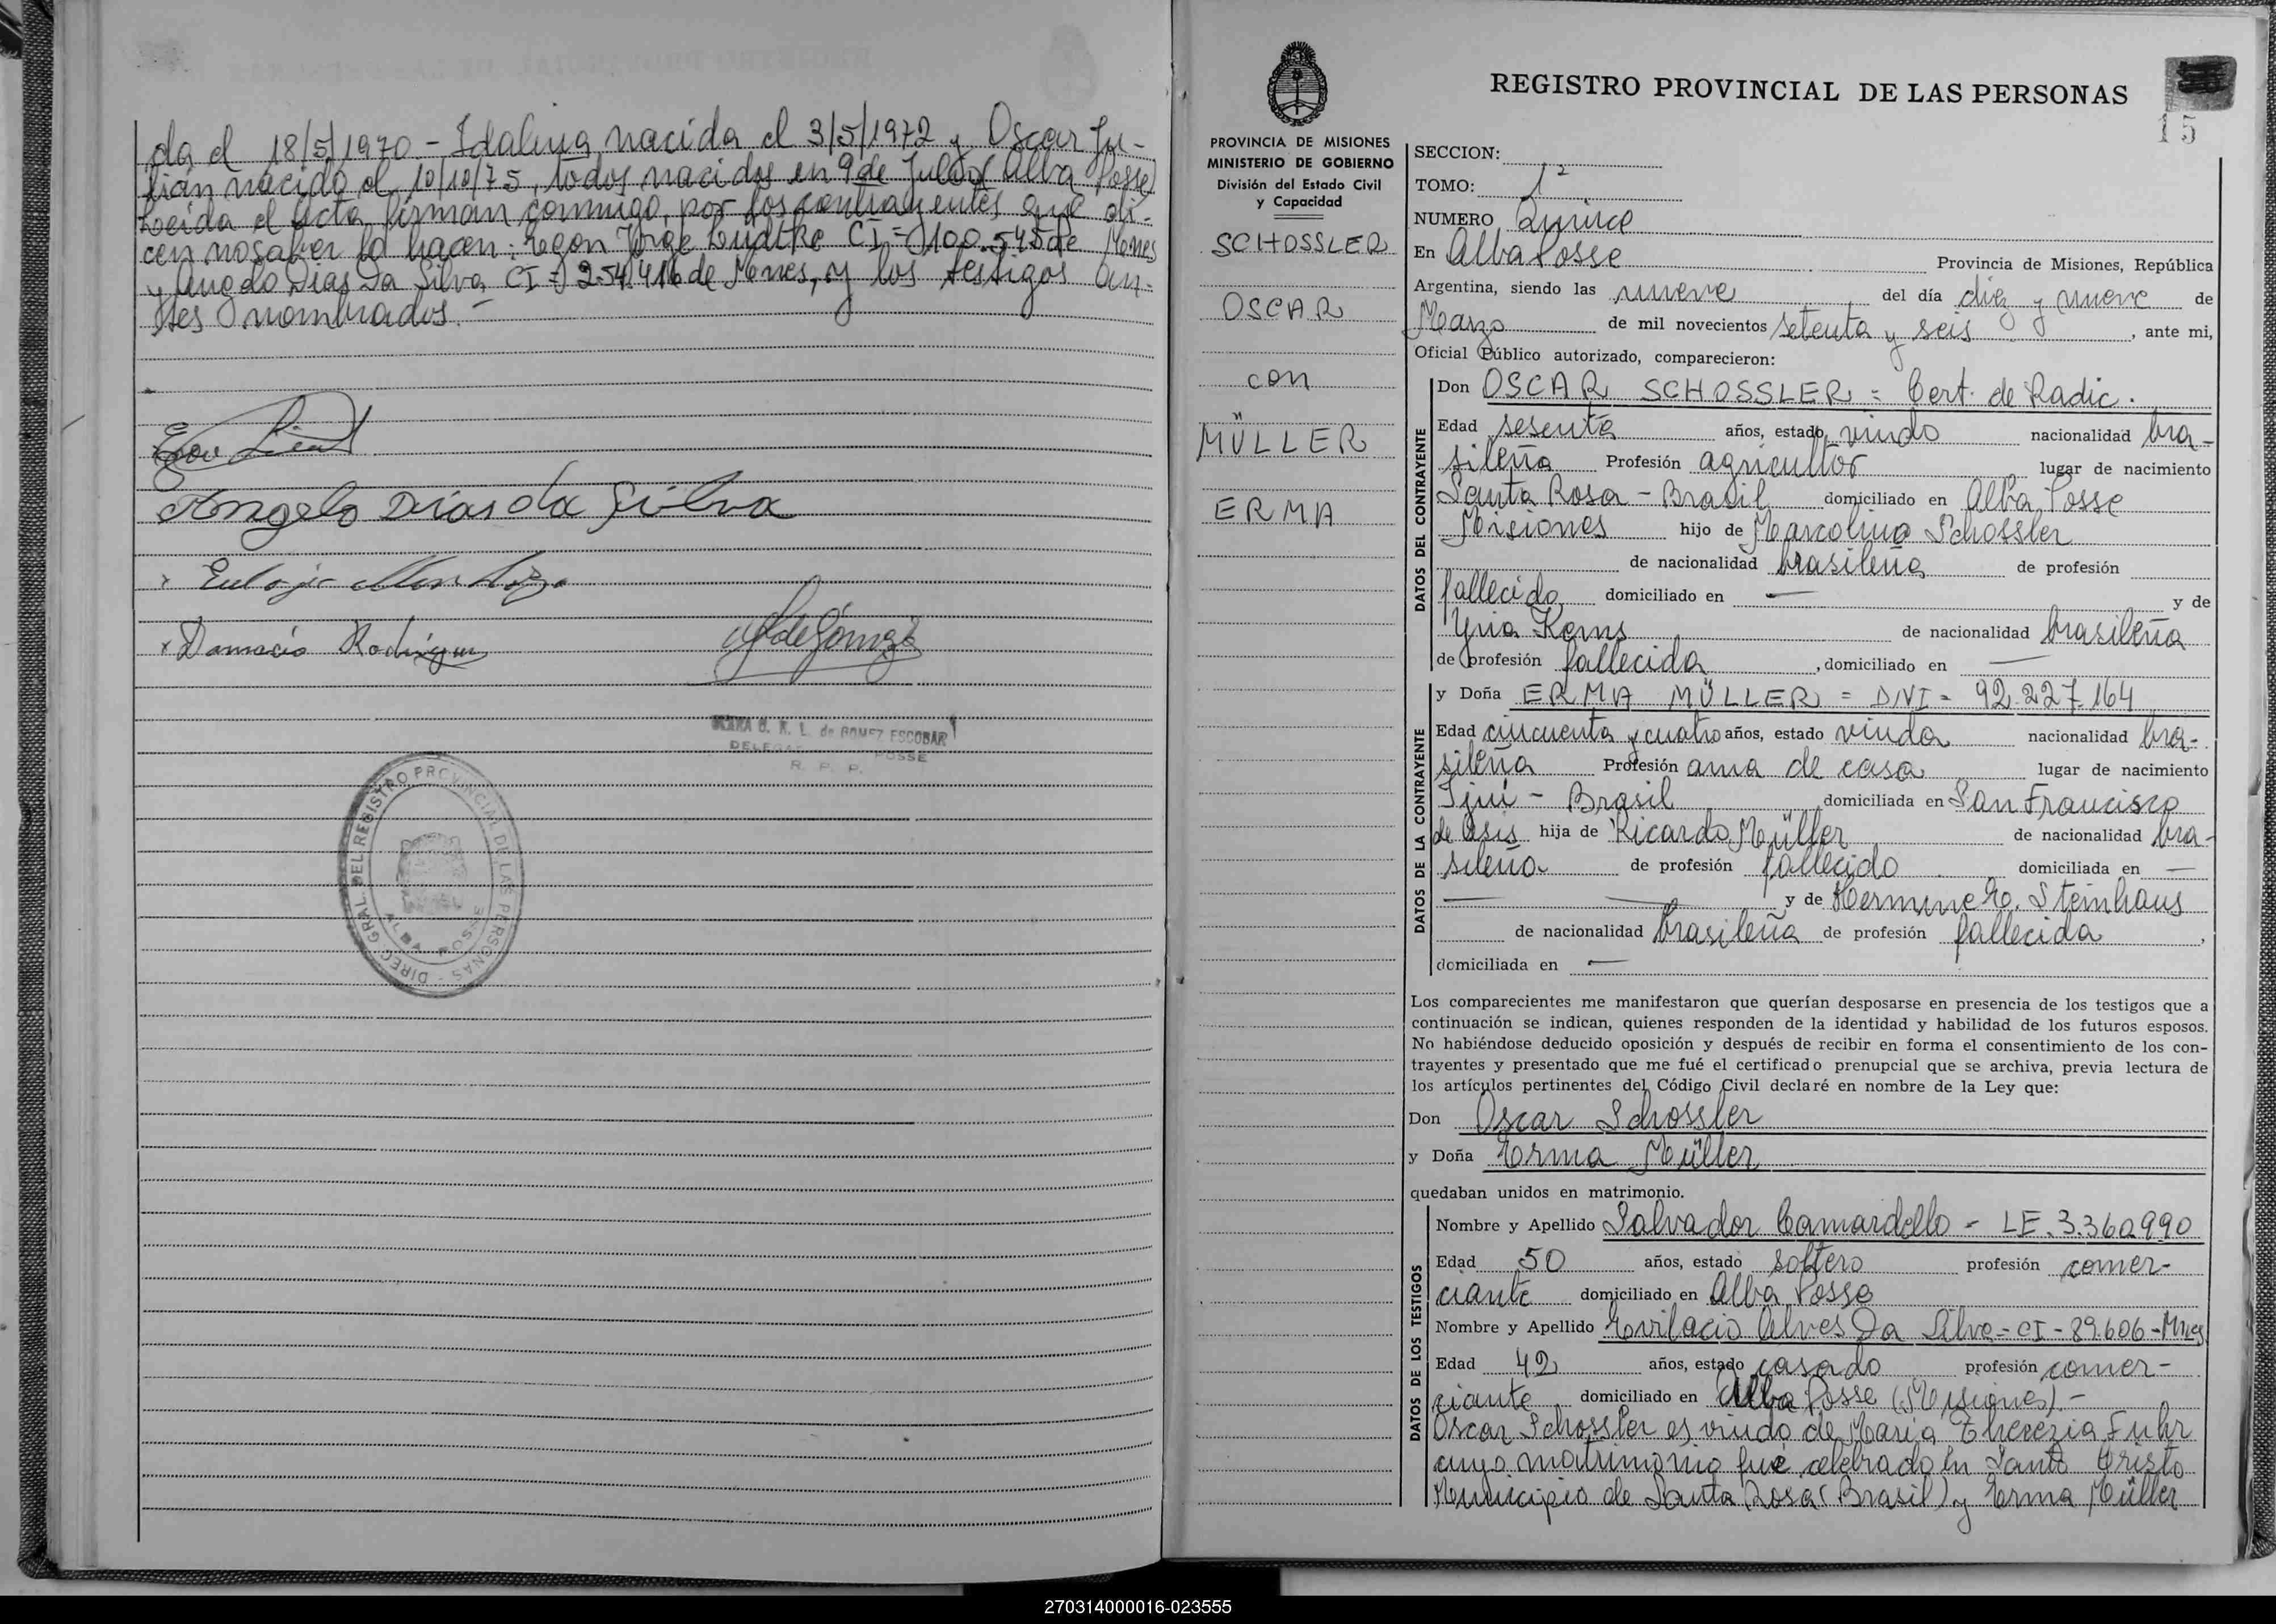 da el 18/5/1970.- Idalina nacida el 3/5/1972 y Oscar Ju-
lián nacido el 10/10/75, todos nacidos en 9 de Julio (Alba Posse)
Leída el acta firman conmigo, por los contrayentes que di-
cen no saber lo hacen: Jorge Ludtke CI = 100.545 de Mnes
y Angelo Dias Da Silva CI = 254.416 de Mnes, y los testigos an-
tes nombrados.-
Angelo Dias da Silva
x Damacio Rodriguez
de Gómez
C. K. L. de GOMEZ ESCOBAR
DELEGA POSSE
R. P. P.
DIREC. GRAL. DEL REGISTRO PROVINCIAL DE LAS PERSONAS -
ALBA POSSE
REGISTRO PROVINCIAL DE LAS PERSONAS
15
PROVINCIA DE MISIONES
MINISTERIO DE GOBIERNO
División del Estado Civil
y Capacidad
SCHOSSLER
OSCAR
con
MÜLLER
ERMA
SECCION:
TOMO: 1º
NUMERO Quince
En Alba Posse Provincia de Misiones, República
Argentina, siendo las nueve del día diez y nueve de
Marzo de mil novecientos setenta y seis, ante mi,
Oficial Público autorizado, comparecieron:
DATOS DEL CONTRAYENTE
Don OSCAR SCHOSSLER = Cert. de Radic.
Edad sesenta años, estado viudo nacionalidad bra-
sileña Profesión agricultor lugar de nacimiento
Santa Rosa - Brasil domiciliado en Alba Posse
Misiones hijo de Marcolino Schossler
de nacionalidad brasileña de profesión
fallecido domiciliado en — y de
Kems de nacionalidad brasileña
de profesión fallecida, domiciliado en —
DATOS DE LA CONTRAYENTE
y Doña ERMA MÜLLER = DNI = 92.227.164
Edad cincuenta y cuatro años, estado viuda nacionalidad bra-
sileña Profesión ama de casa lugar de nacimiento
Ijuí - Brasil domiciliada en San Francisco
de Asís hija de Ricardo Müller de nacionalidad bra-
sileña de profesión fallecido domiciliada en —
— — y de Hermine Steinhaus
de nacionalidad brasileña de profesión fallecida,
domiciliada en —
Los comparecientes me manifestaron que querían desposarse en presencia de los testigos que a
continuación se indican, quienes responden de la identidad y habilidad de los futuros esposos.
No habiéndose deducido oposición y después de recibir en forma el consentimiento de los con-
trayentes y presentado que me fué el certificado prenupcial que se archiva, previa lectura de
los artículos pertinentes del Código Civil declaré en nombre de la Ley que:
Don Oscar Schossler
y Doña Erma Müller
quedaban unidos en matrimonio.
DATOS DE LOS TESTIGOS
Nombre y Apellido Salvador Camardello - LE. 3.360.990
Edad 50 años, estado soltero profesión comer-
ciante domiciliado en Alba Posse
Nombre y Apellido Evilacio Alves Da Silva - CI - 89.606 - Mnes
Edad 42 años, estado casado profesión comer-
ciante domiciliado en Alba Posse (Misiones).-
Oscar Schossler es viudo de María Therezia Fuhr
cuyo matrimonio fué celebrado en Santo Cristo
Municipio de Santa Rosa (Brasil) y Erma Müller
270314000016-023555